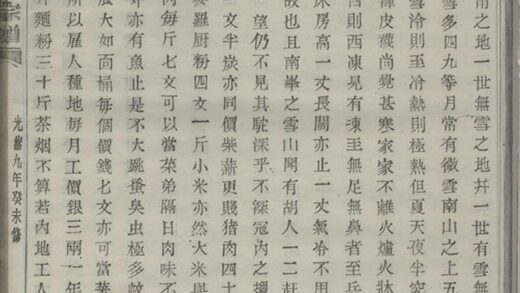 之地一世無雪之地幷一世有雪
雪多四九等月常有微雪南山之上五
雪冷則至冷熱則極熱但夏天夜半突
皮襖尚覺甚寒家家不離火爐火牀
則西凍見有凍至無足無鼻者至兵
牀房高一丈長闊亦止一丈氣冷不用
故也且南峯之雪山聞有胡人一二赶
望仍不見其駝深乎不深冠內之
文半炭亦同價柴薪更賤猪肉四十
麥羅廚粉四文一斤小米亦然大米與
肉每斤七文可以當菜弟隔日肉味不
亦有魚止是不大跳蚤臭虫極多蚊
瓜大如面桶每個價錢七文亦可當
所以雇人種地每月工價銀三兩一年
斤麵粉三十斤茶烟不算若內地工人
宗譜
光緒九年癸未修